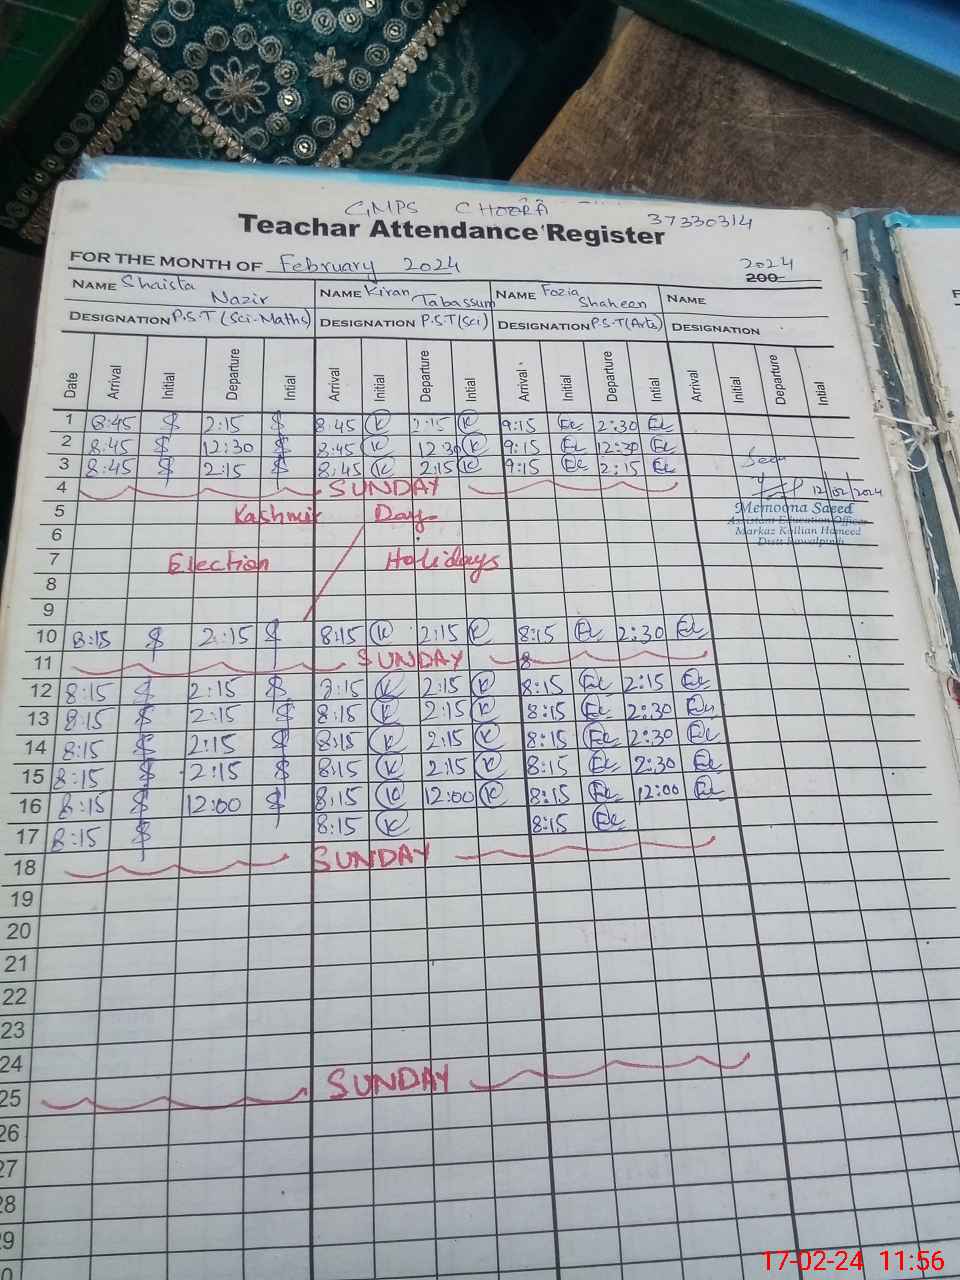 GMPS CHOORA 37330314
Teachar Attendance Register
FOR THE MONTH OF February 2024 2024
200
NAME Shaista Nazir NAME Kiran Tabassum NAME Fozia Shaheen NAME
DESIGNATION P.S.T (Sci-Maths) DESIGNATION P.S.T (Sci) DESIGNATION P.S.T (Arts) DESIGNATION
Date Arrival Initial Departure Intial Arrival Initial Departure Intial Arrival Initial Departure Intial Arrival Initial Departure Intial
1 8:45 $ 2:15 $ 8:45 K 2:15 K 9:15 2:30
2 8:45 $ 12:30 $ 8:45 K 12:30 K 9:15 12:30
3 8:45 $ 2:15 $ 8:45 K 2:15 K 9:15 2:15
4 SUNDAY
Seen
12/02/2024
5 Kashmir Day
Memoona Saeed
Assistant Education Officer
6
Markaz Kollian Hameed
Distt Rawalpindi
7 Election Holidays
8
9
10 8:15 $ 2:15 $ 8:15 K 2:15 K 8:15 2:30
11 SUNDAY 8
12 8:15 $ 2:15 $ 8:15 K 2:15 K 8:15 2:15
13 8:15 $ 2:15 $ 8:15 K 2:15 K 8:15 2:30
14 8:15 $ 2:15 $ 8:15 K 2:15 K 8:15 2:30
15 8:15 $ 2:15 $ 8:15 K 2:15 K 8:15 2:30
16 8:15 $ 12:00 $ 8:15 K 12:00 K 8:15 12:00
17 8:15 $ 8:15 K 8:15
18 SUNDAY
19
20
21
22
23
24
25 SUNDAY
26
27
28
29
17-02-24 11:56